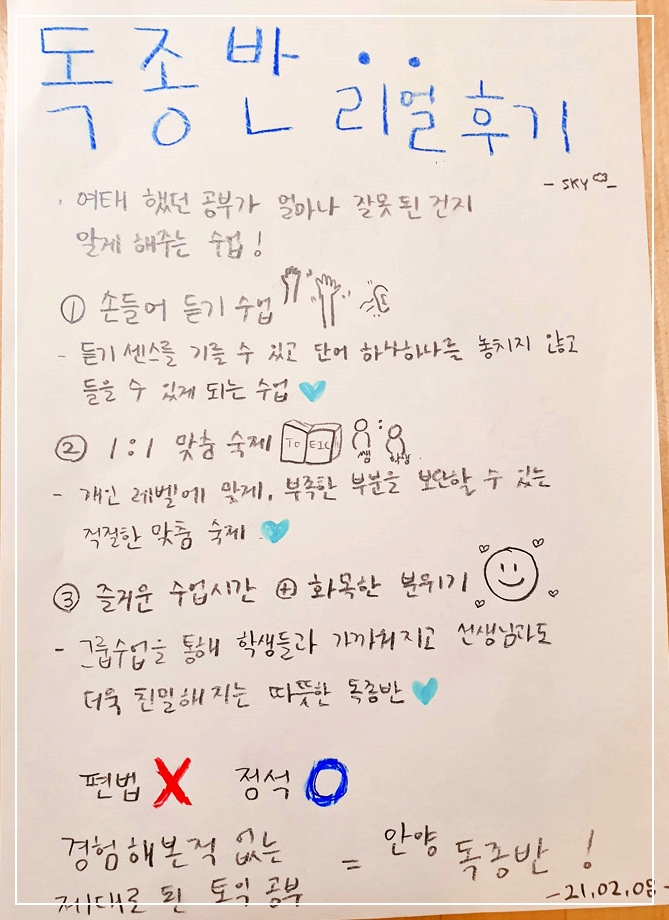 독종반 리얼 후기
- SKY -
· 여태 했던 공부가 얼마나 잘못된 건지
알게 해주는 수업!
① 손들어 듣기 수업
- 듣기 센스를 기를 수 있고 단어 하나하나를 놓치지 않고
들을 수 있게 되는 수업
② 1:1 맞춤 숙제 TOEIC 쌤 학생
- 개인 레벨에 맞게, 부족한 부분을 보완할 수 있는
적절한 맞춤 숙제
③ 즐거운 수업시간 ⊕ 화목한 분위기
- 그룹수업을 통해 학생들과 가까워지고 선생님과도
더욱 친밀해지는 따뜻한 독종반
편법 X 정석 O
경험해본적 없는
제대로 된 토익 공부 = 안양 독종반!
-21.02.08-